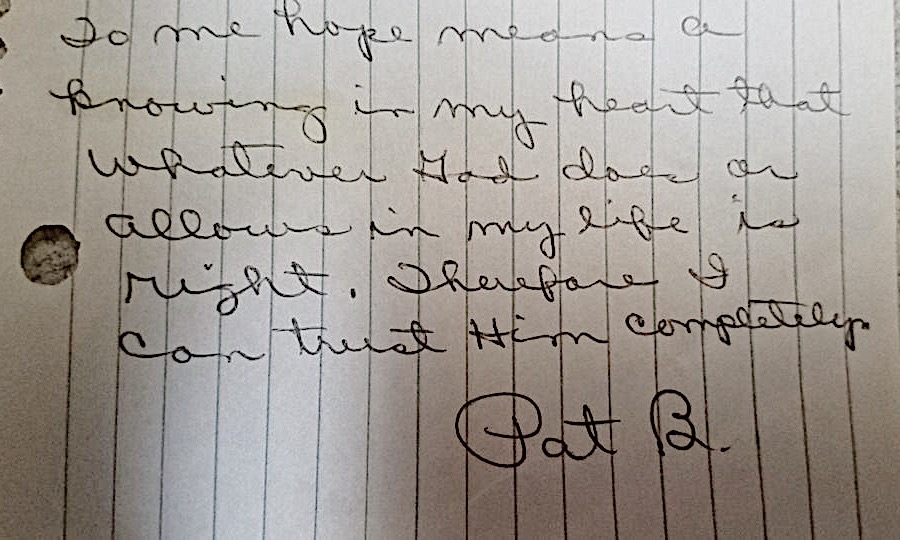 To me hope means a
knowing in my heart that
whatever God does or
allows in my life is
right. Therefore I
can trust Him completely.
Pat B.